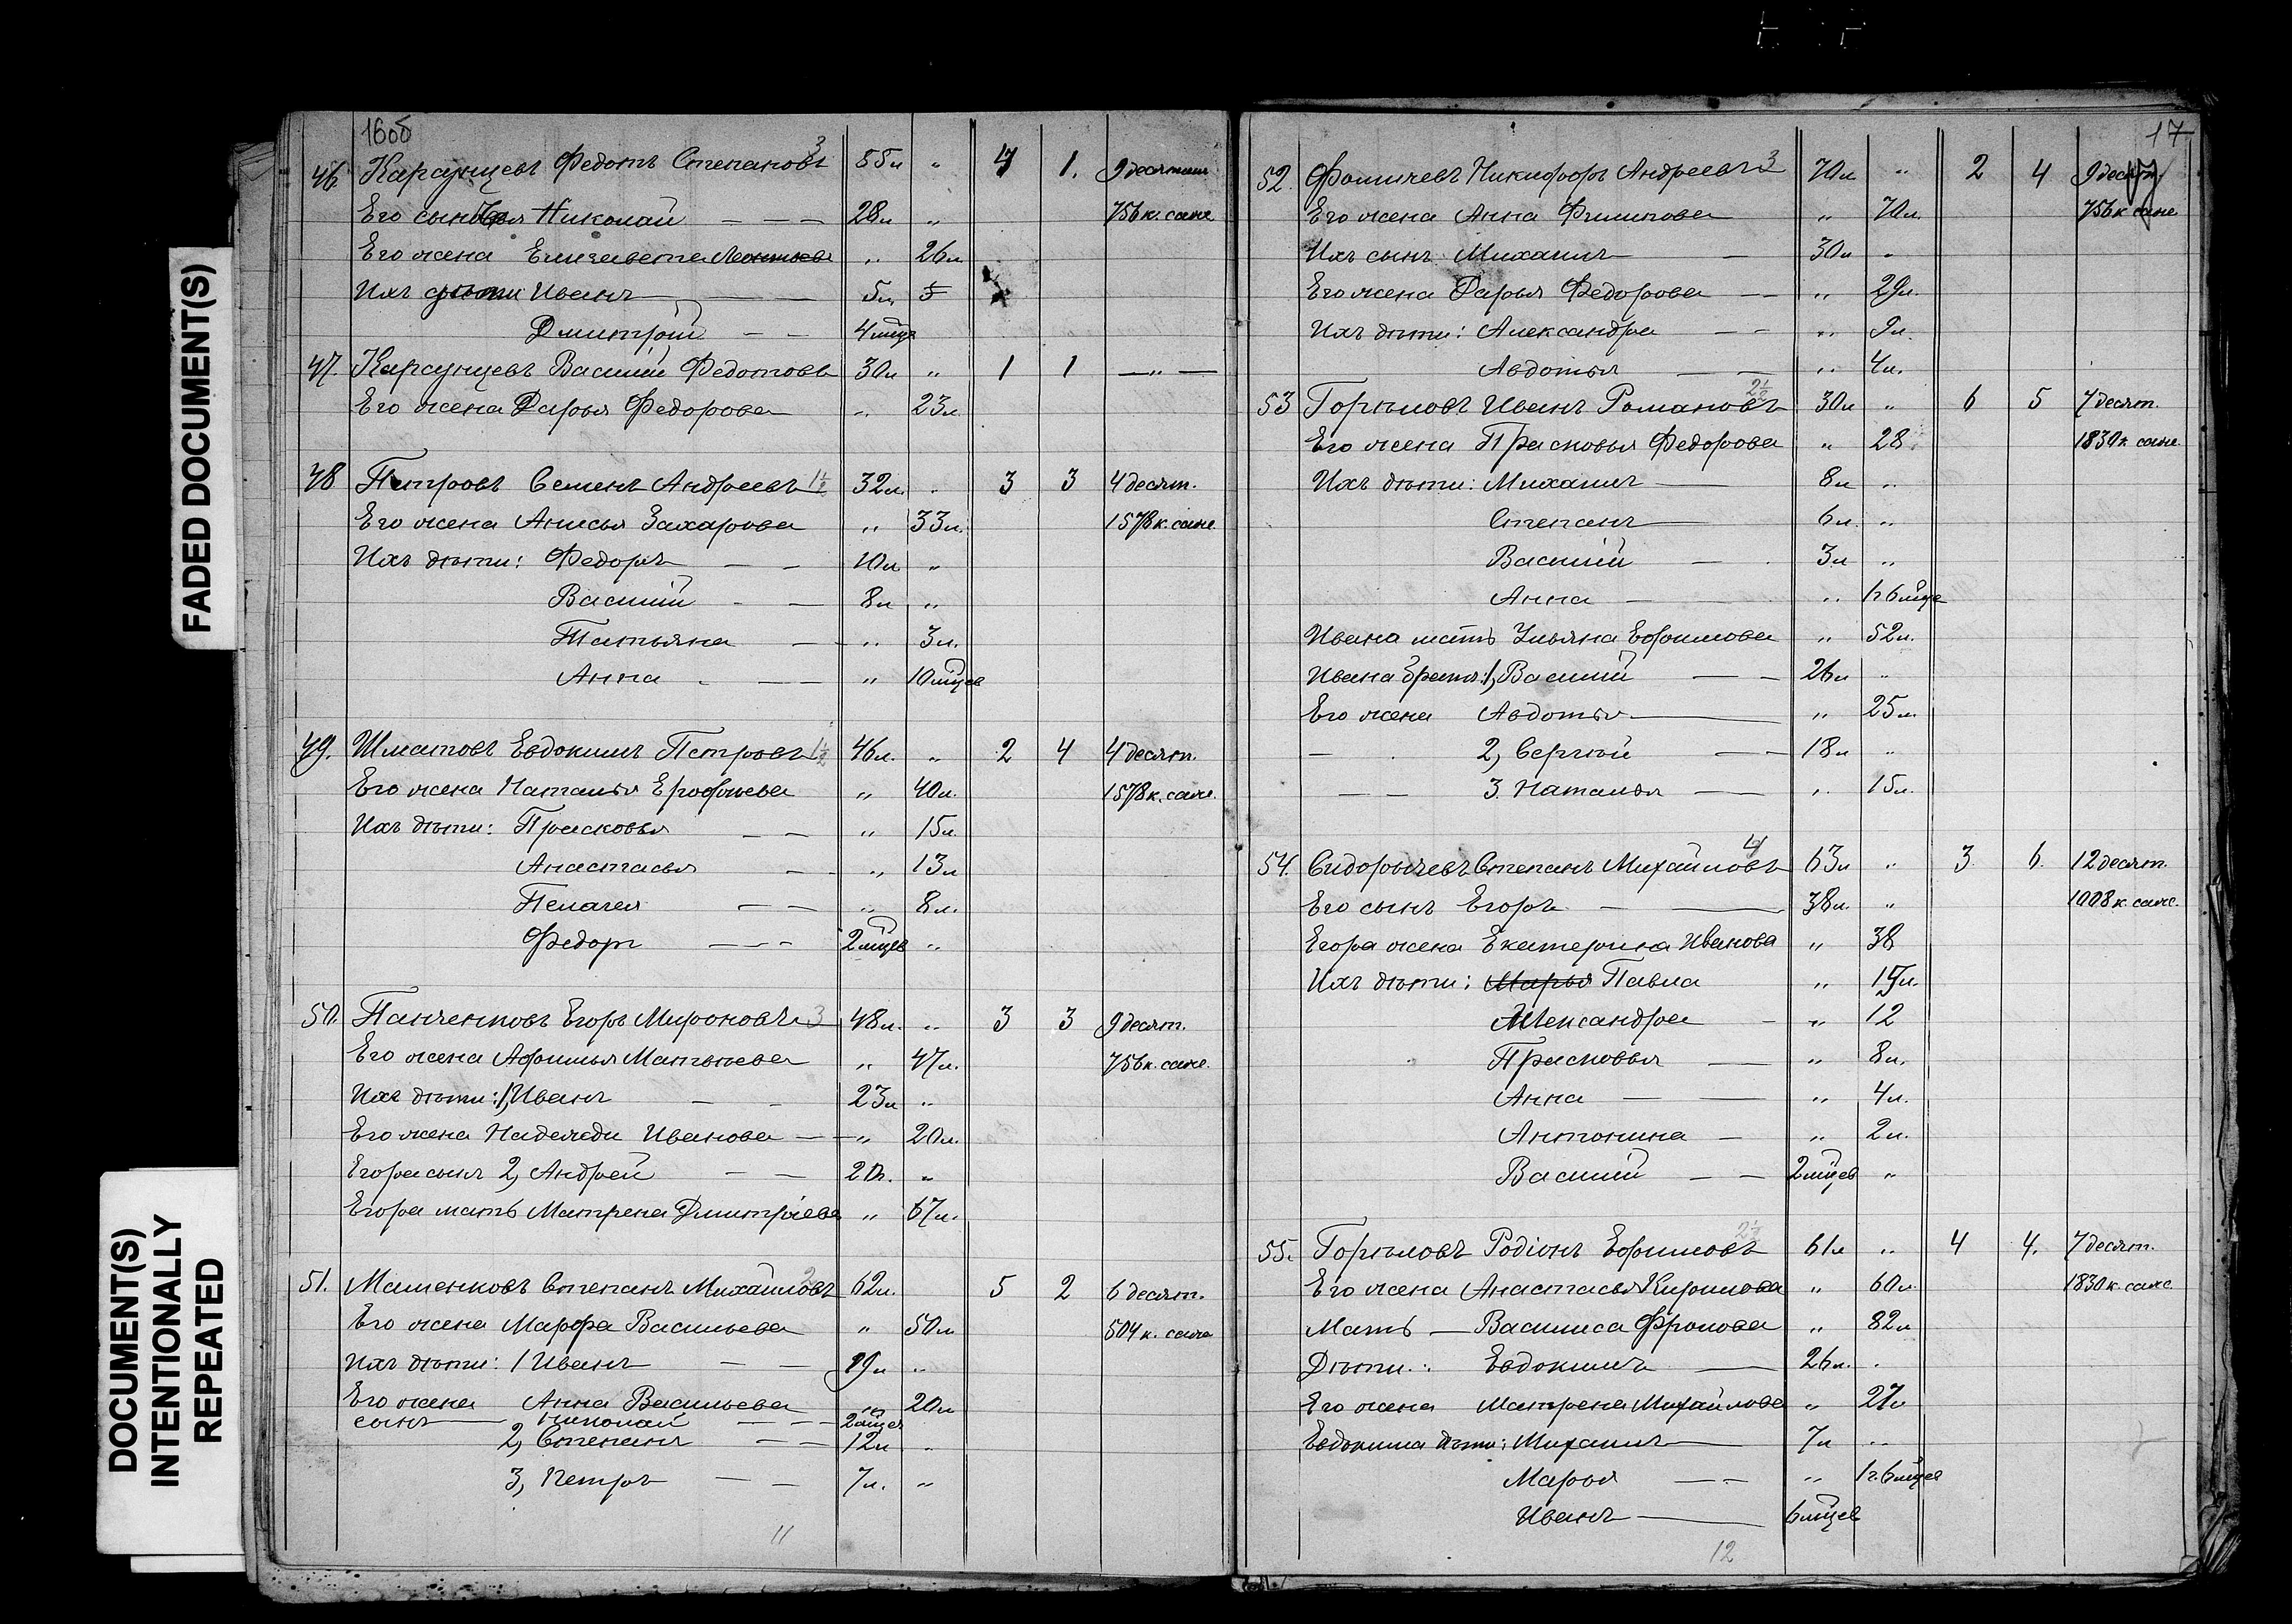 FADED DOCUMENT(S)
DOCUMENT(S)
INTENTIONALLY
REPEATED
16об
46. Карсунцевъ Федотъ Степановъ 3 55л " 4 1. 9 десятин
Его сыновья Николай — — — 28л " 756 к. саже
Его жена Елизавета Леонтьева " 26л
Ихъ дѣти Иванъ — — 5л. 5
Дмитрій — — 4 мцѣ
47. Карсунцевъ Василій Федотовъ 30л " 1 1 — " —
Его жена Дарья Федорова " 23л
48 Петровъ Семенъ Андреевъ 1½ 32л. " 3 3 4 десят.
Его жена Анисья Захарова " 33л. 1578 к. саже
Ихъ дѣти: Федоръ — — 10л "
Василій - — 8л "
Татьяна — " 3л.
Анна - — " 10 мцев
49. Шматовъ Евдокимъ Петровъ 1½ 46л. " 2 4 4 десят.
Его жена Наталья Ерофеева " 40л. 1578 к. саже.
Ихъ дѣти: Прасковья — — " 15л.
Анастасья — " 13л
Пелагея — — " 8л.
Федоръ — — 2 мцев "
50. Панченковъ Егоръ Мироновъ 3 48л. " 3 3 9 десят.
Его жена Афимья Матвѣева " 47л. 756 к. саже.
Ихъ дѣти: 1, Иванъ — - 23л "
Его жена Надежда Иванова — " 20л.
Егора сынъ 2, Андрей — — 20л. "
Егора мать Матрена Дмитріева " 67л.
51. Машенковъ Степанъ Михайловъ 2 62л. 5 2 6 десят.
Его жена Марфа Васильева " 50л 504 к. саже
Ихъ дѣти: 1 Иванъ — — 19л "
Его жена Анна Васильева " 20л
сынъ — Николай — — 2 мцев
2, Степанъ — — 12л "
3, Петръ — — 7л. "
11
17
52. Фомичевъ Никифоръ Андреевъ 3 70л " 2 4 9 десят.
Его жена Анна Филипова " 70л. 756 к саже
Ихъ сынъ Михаилъ — 30л "
Его жена Дарья Федорова — " 29л.
Ихъ дѣти: Александра — - " 9л.
Авдотья — — " 4л.
53 Горѣловъ Иванъ Романовъ 2½ 30л " 6 5 7 десят.
Его жена Прасковья Федорова " 28 1830 к саже
Ихъ дѣти: Михаилъ — 8л "
Степанъ — 6л. "
Василій — 3л "
Анна — " 1г 6 мце
Ивана мать Ульяна Ефимова " 52л.
Ивана братья: 1, Василій — — 26л "
Его жена Авдотья — " 25л.
— 2, Сергѣй — — 18л "
— — 3. Наталья — " 15л.
54. Сидорычевъ Степанъ Михайловъ 4 63л " 3 6. 12 десят.
Его сынъ Егоръ - — 38л. " 1008 к. саже.
Егора жена Екатерина Иванова " 38
Ихъ дѣти: Марья Павла " 15л.
Александра - " 12
Прасковья — " 8л.
Анна — — " 4л.
Антонина — " 2л.
Василій — — 2 мцев "
55. Горѣловъ Родіонъ Ефимовъ 2½ 61л " 4 4. 7 десят.
Его жена Анастасья Кирилова " 60л 1830 к. саже
Мать — Василиса Фролова " 82л
Дѣти: Евдокимъ — 26л. "
Его жена Матрена Михайлова " 27л
Евдокима дѣти: Михаилъ — 7л "
Марья — — " 1г. 6 мцев
Иванъ — 6 мцев
12